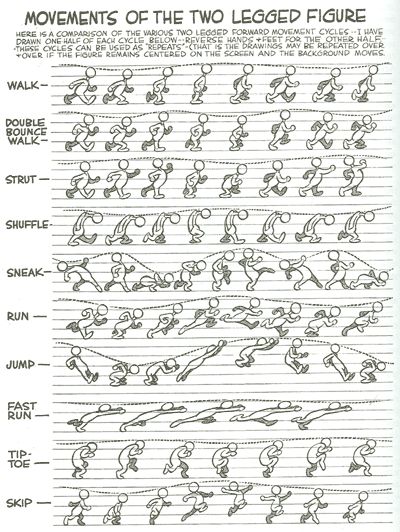 MOVEMENTS OF THE TWO LEGGED FIGURE
HERE IS A COMPARISON OF THE VARIOUS TWO LEGGED FORWARD MOVEMENT CYCLES -- I HAVE
DRAWN ONE HALF OF EACH CYCLE BELOW -- REVERSE HANDS + FEET FOR THE OTHER HALF-
-THESE CYCLES CAN BE USED AS "REPEATS" - (THAT IS THE DRAWINGS MAY BE REPEATED OVER
+ OVER IF THE FIGURE REMAINS CENTERED ON THE SCREEN AND THE BACKGROUND MOVES.
WALK-
DOUBLE
BOUNCE
WALK-
STRUT-
SHUFFLE-
SNEAK-
RUN -
JUMP-
FAST
RUN -
TIP-
TOE -
SKIP -